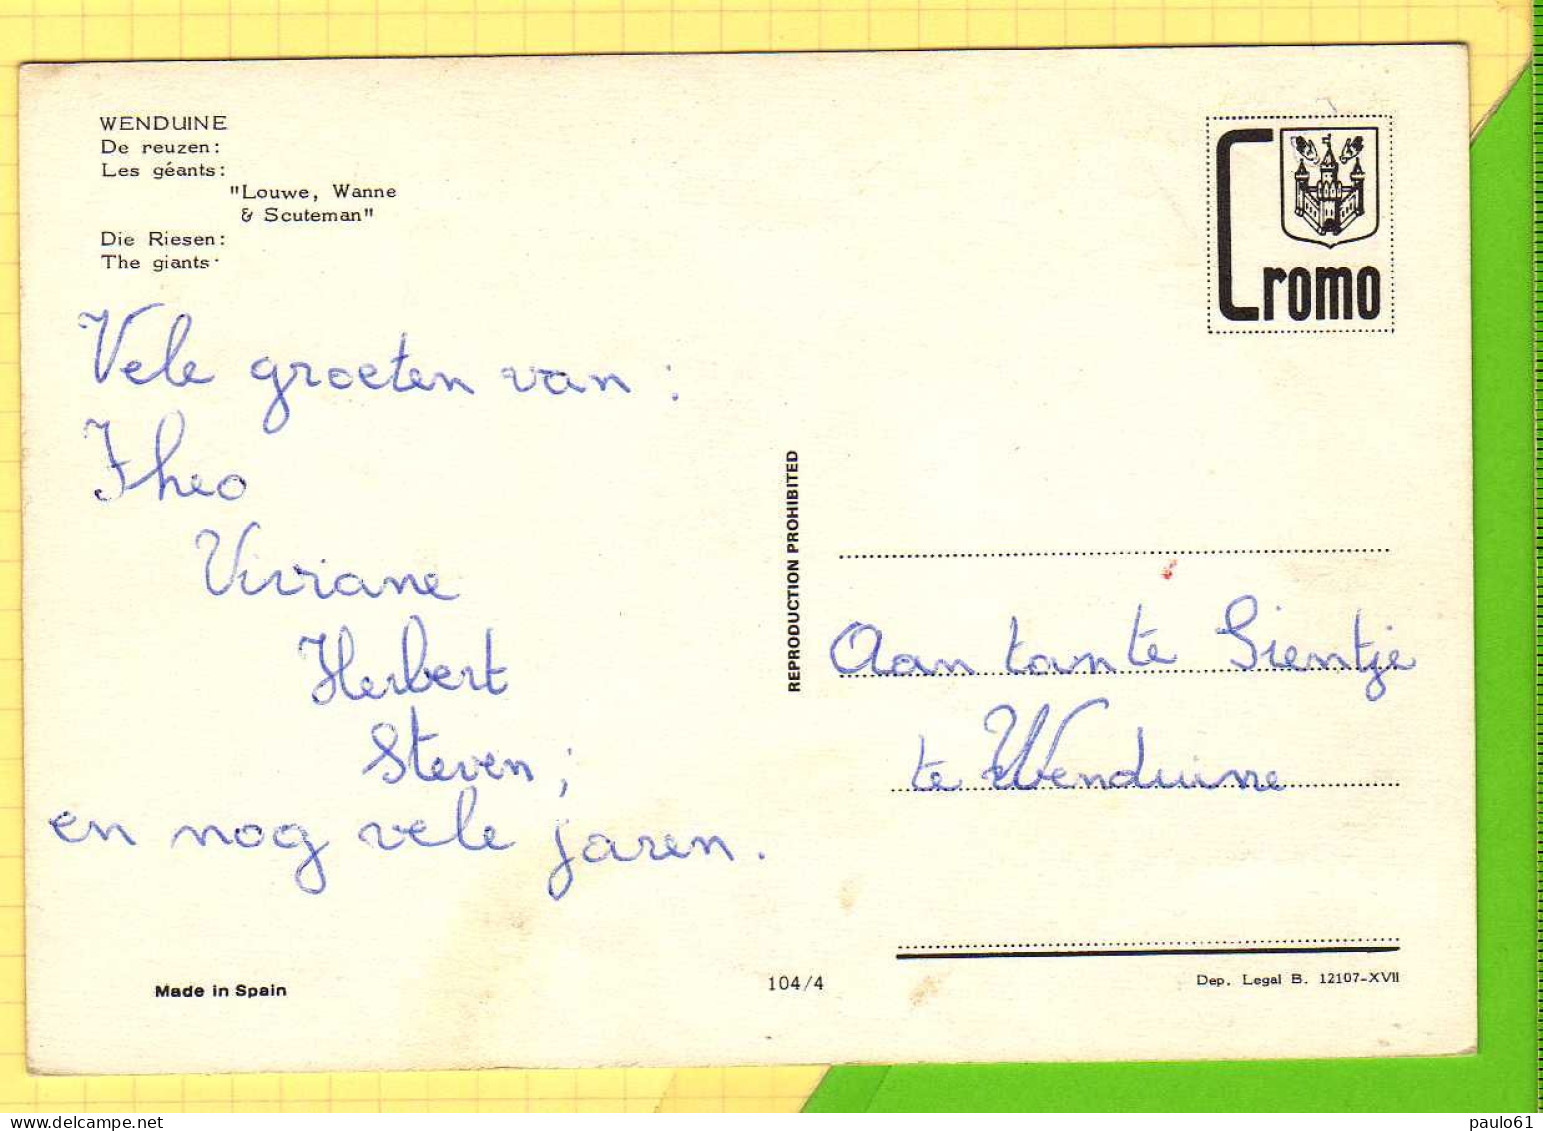 WENDUINE
De reuzen:
Les géants:
"Louwe, Wanne
& Scuteman"
Die Riesen:
The giants:
Vele groeten van:
Theo
Viviane
Herbert
Steven;
en nog vele jaren.
Made in Spain
REPRODUCTION PROHIBITED
104/4
Cromo
Aan tante Sientje
te Wenduine
Dep. Legal B. 12107-XVII
www.delcampe.net
paulo61